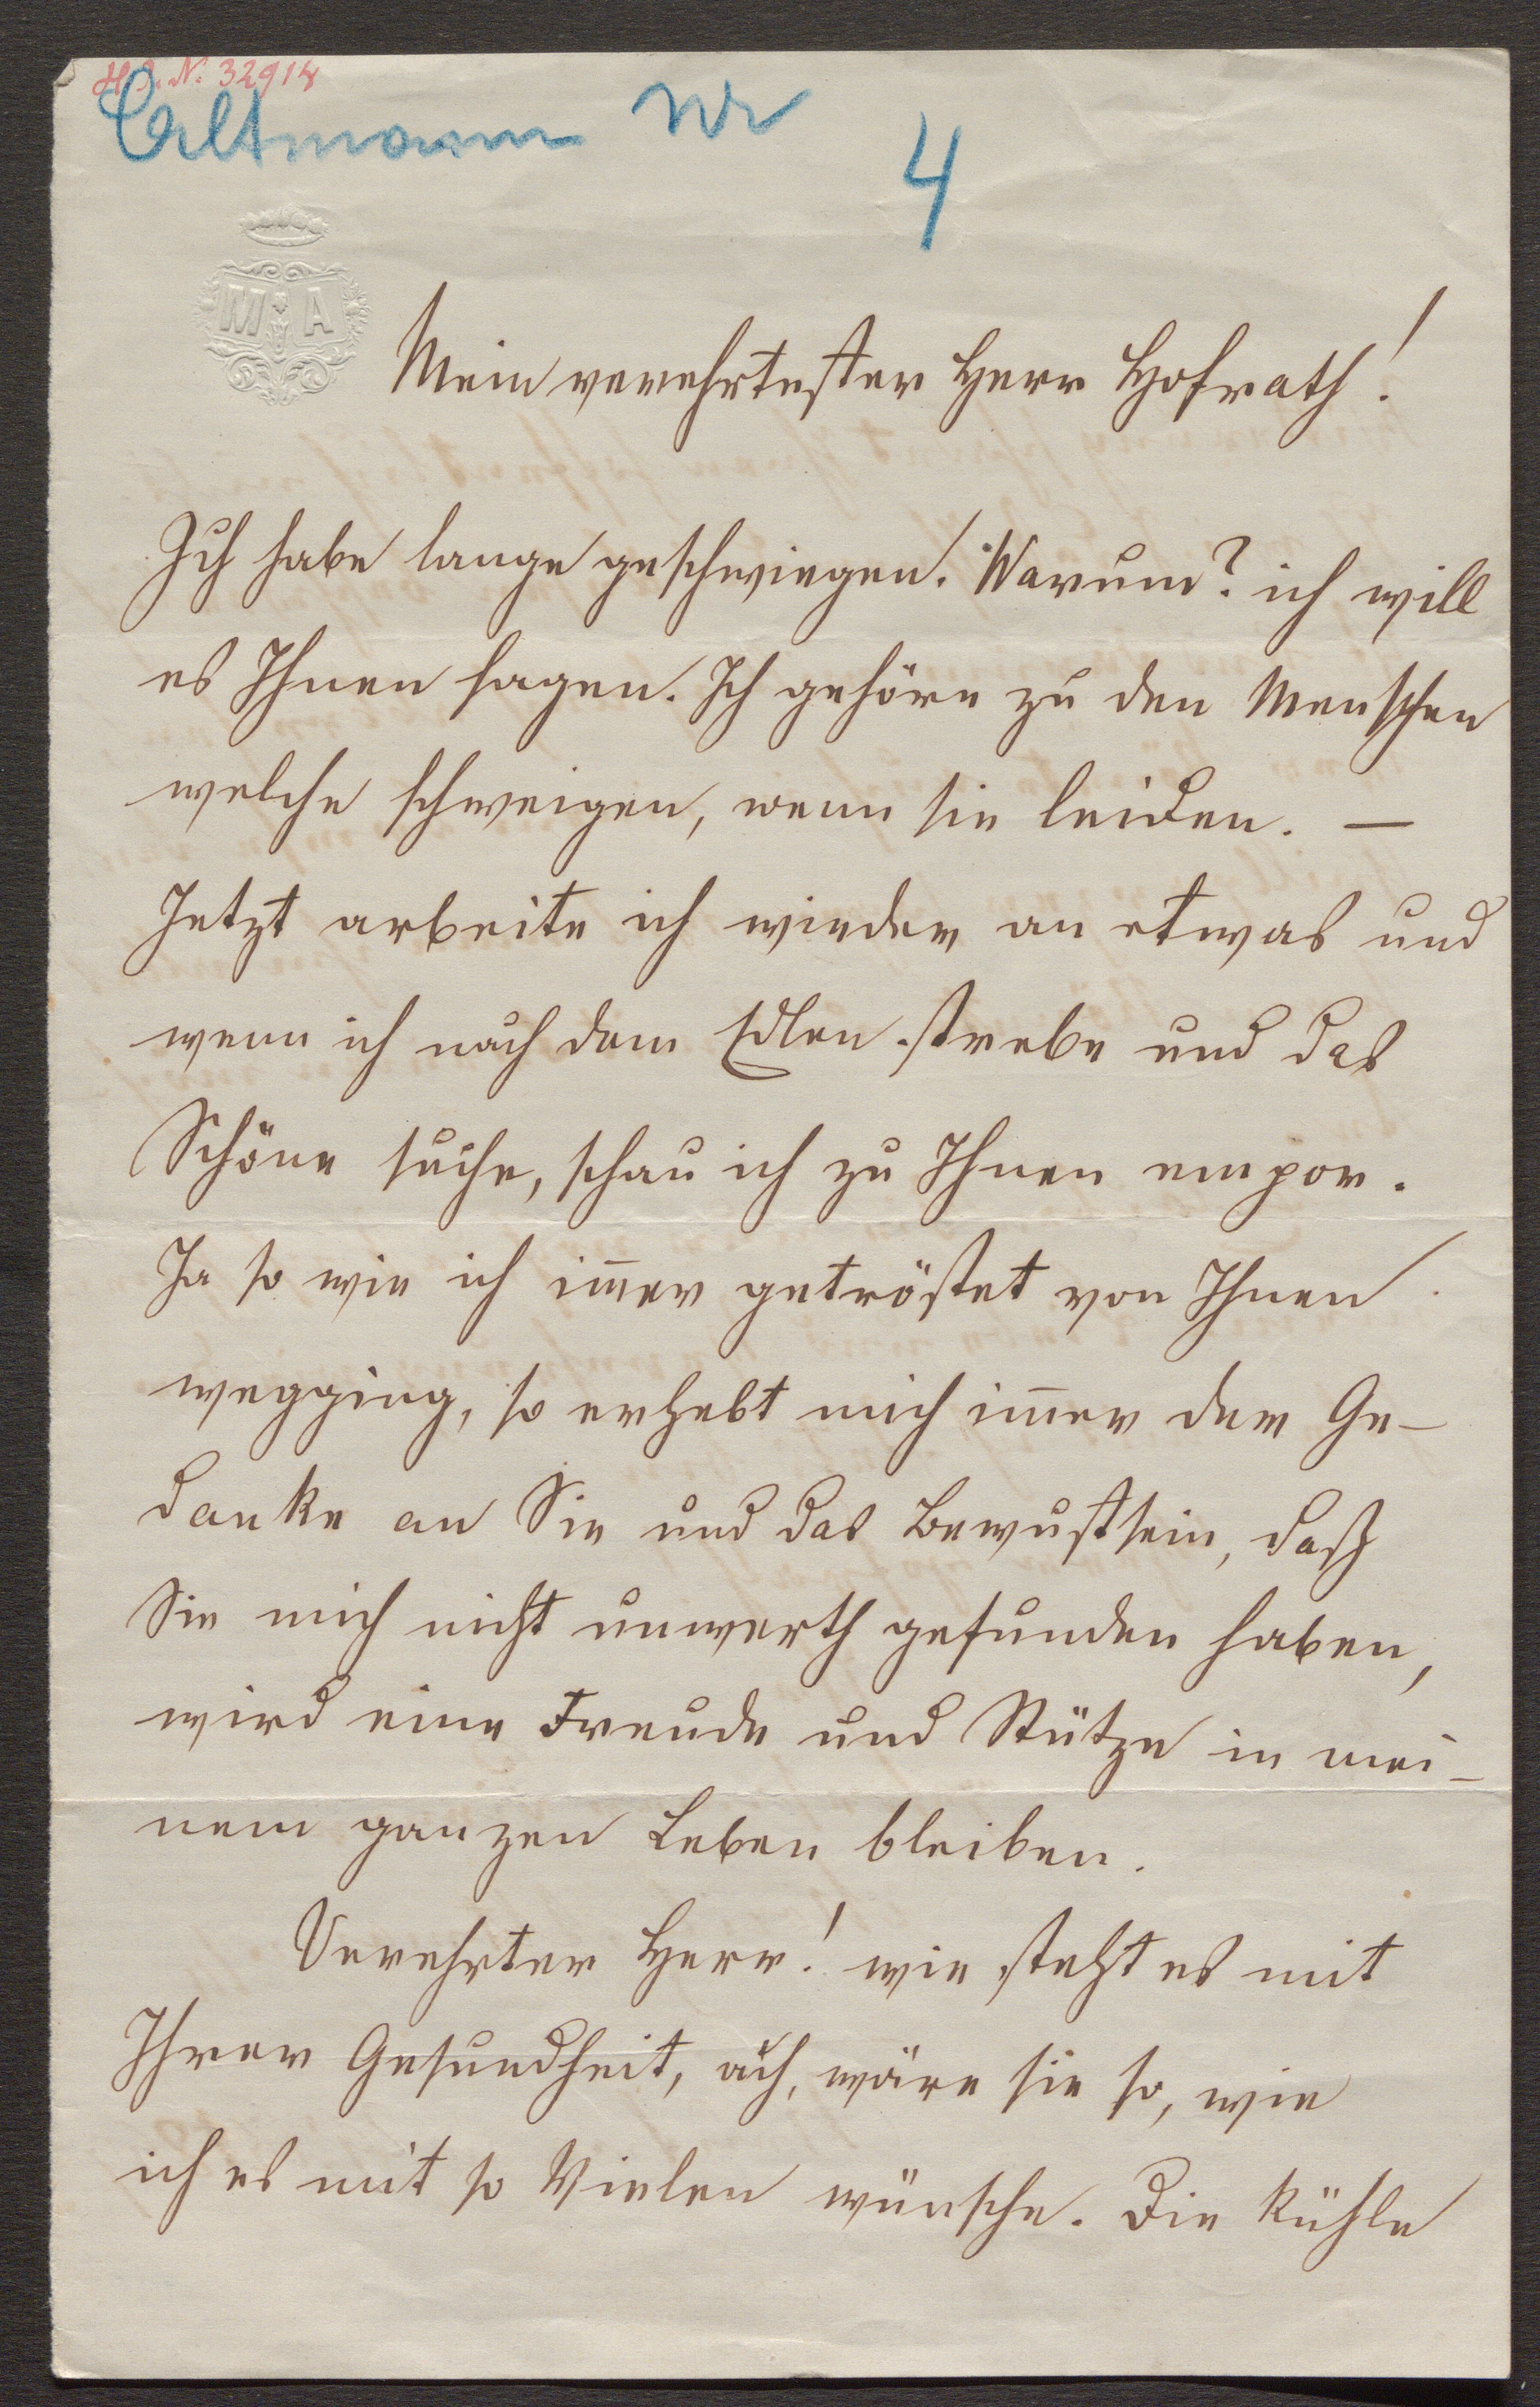 H. I. N. 32914
Altmann Nr
4
M A
Mein verehrtester Herr Hofrath!
Ich habe lange geschwiegen. Warum? ich will
es Ihnen sagen. Ich gehöre zu den Menschen
welche schweigen, wenn sie leiden. —
Jetzt arbeite ich wieder an etwas und
wenn ich nach dem Edlen strebe und das
Schöne suche, schau ich zu Ihnen empor.
Ja so wie ich im̄er getröstet von Ihnen
wegging, so erhebt mich im̄er der Ge-
danke an Sie und das Bewustsein, daß
Sie mich nicht unwerth gefunden haben,
wird eine Freude und Stütze in mei-
nem ganzen Leben bleiben.
Verehrter Herr! wie steht es mit
Ihrer Gesundheit, ach, wäre sie so, wie
ich es mit so Vielen wünsche. Die kühle